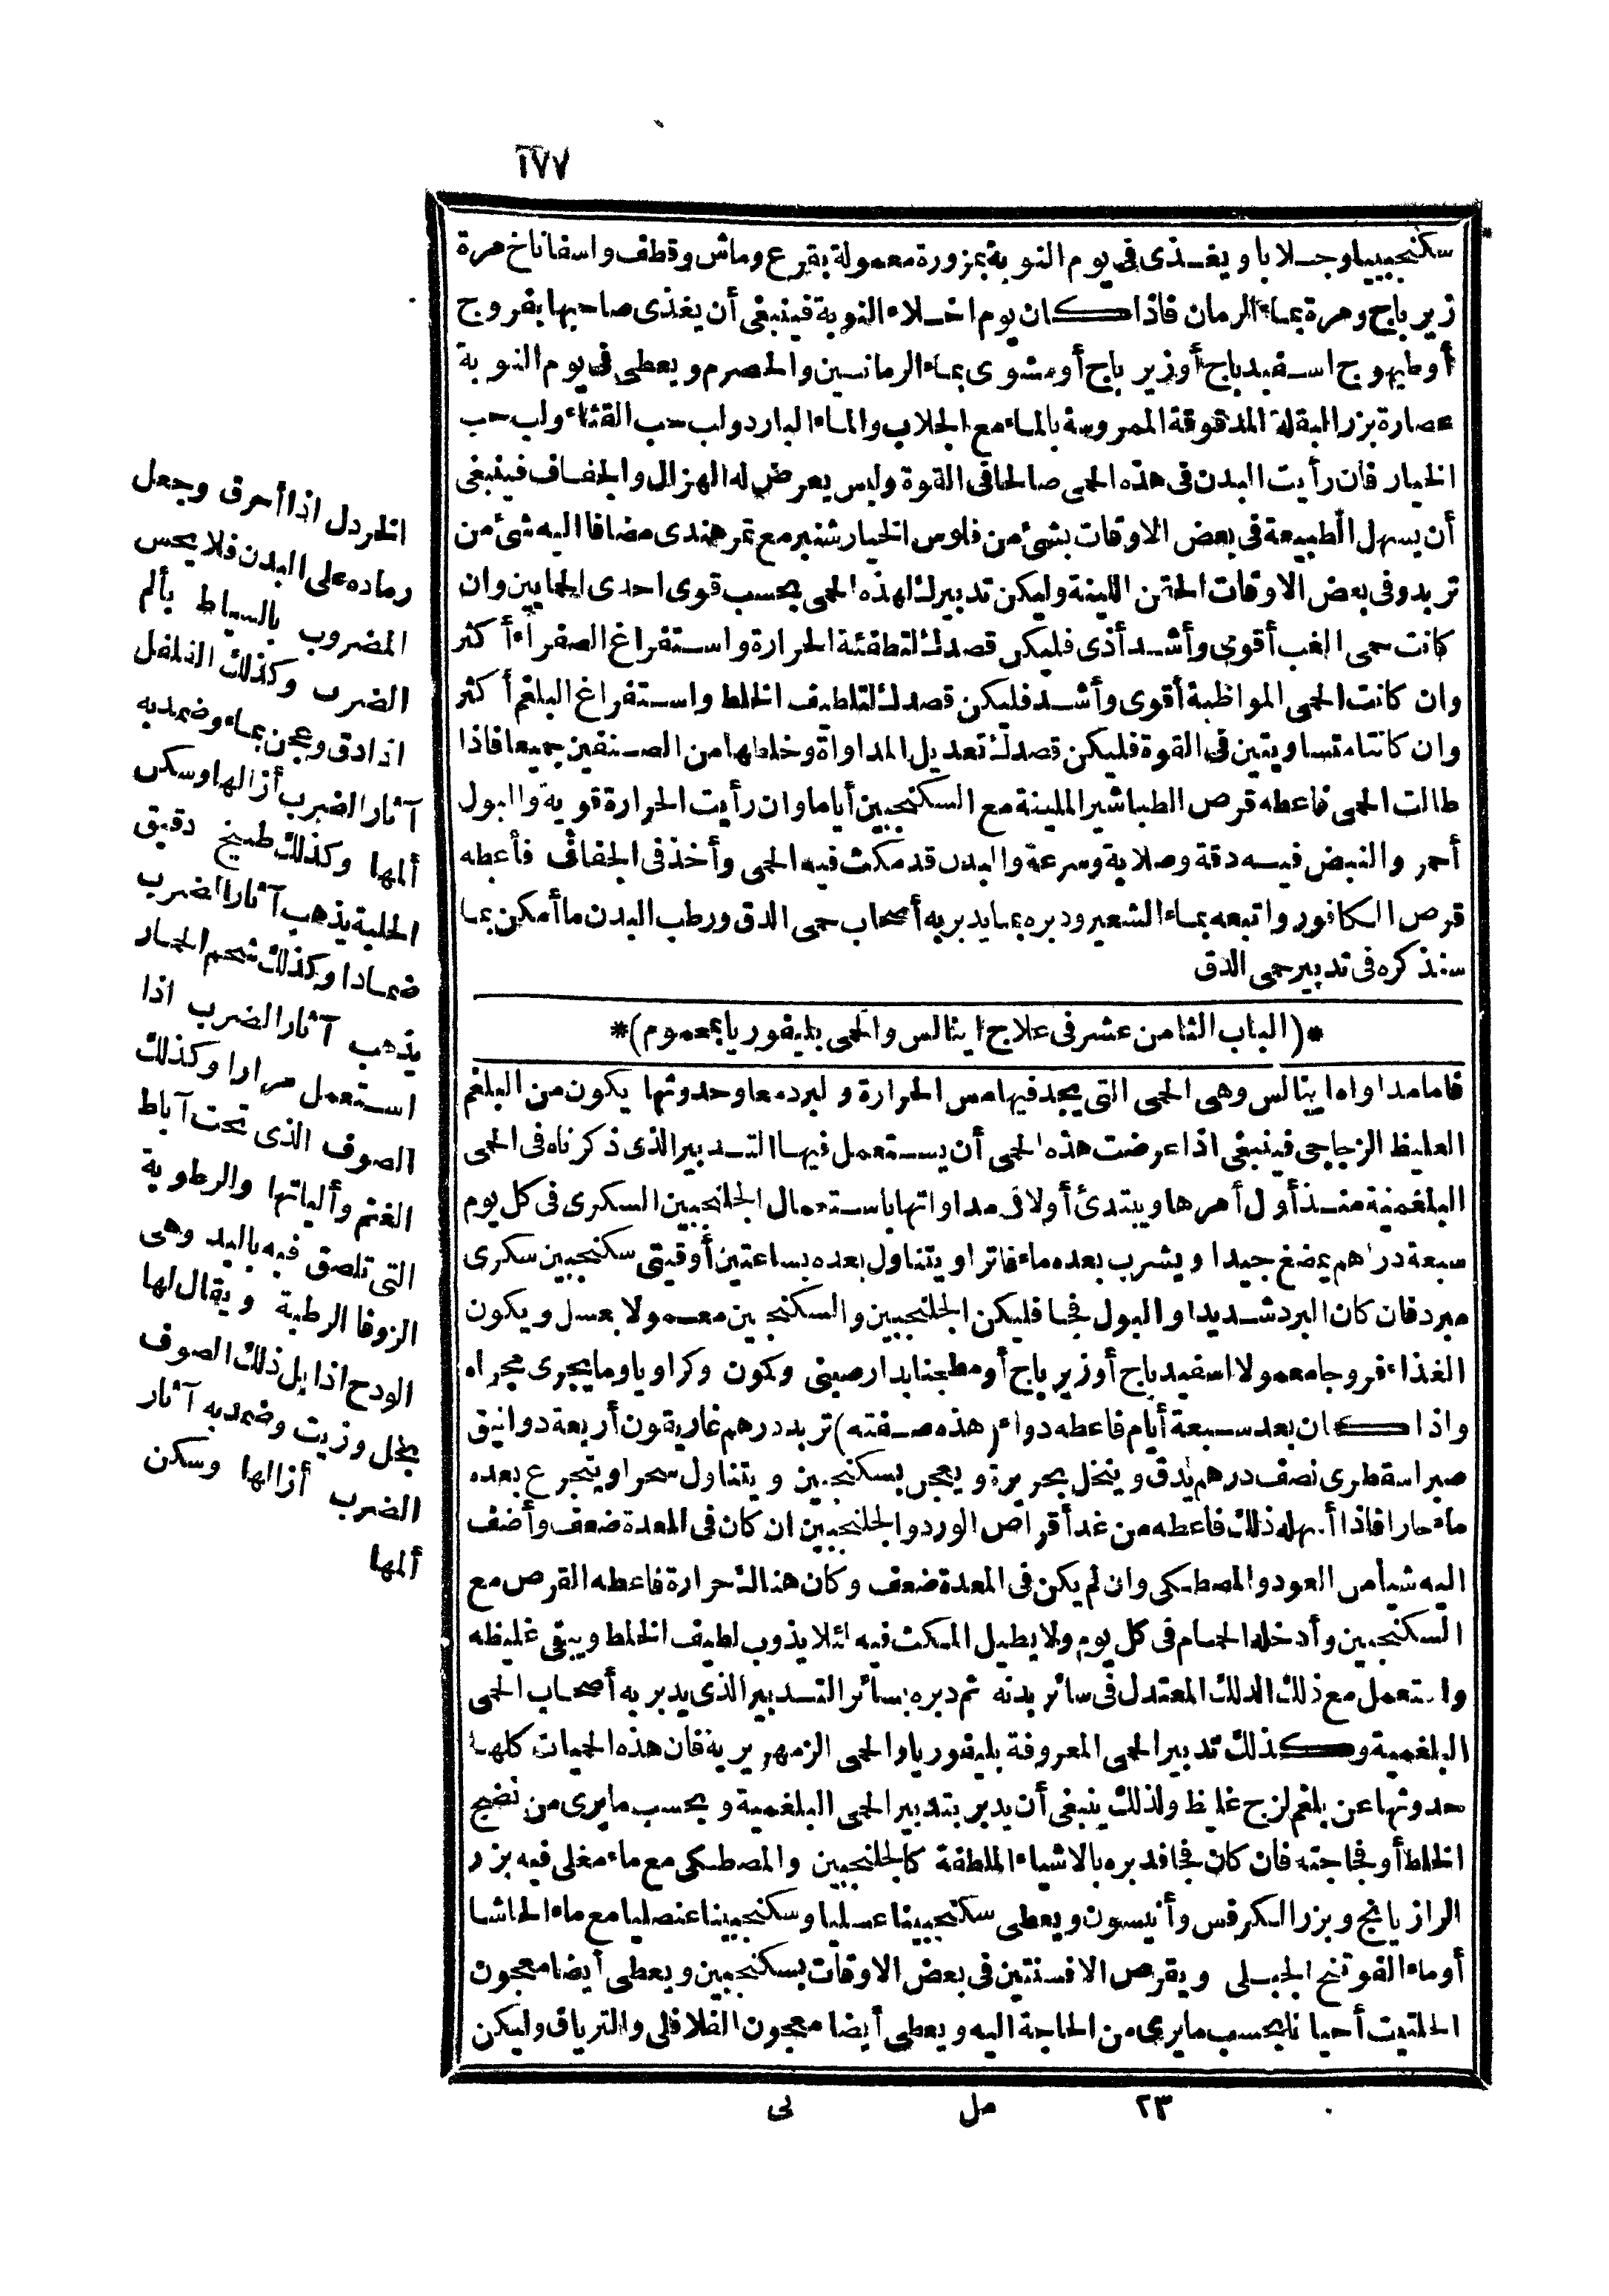 ١٧٧
سكنجبينا وجلابا ويغذى في يوم النوبة بمزورة معمولة بقرع وماش وقطف واسفاناخ مرة
زيرباج ومرة بماء الرمان فاذا كان يوم اخلاء النوبة فينبغى أن يغذى صاحبها بفروج
أوطيهوج اسفيدباج أوزيرباج أومشوى بماء الرمانين والحصرم ويعطى في يوم النوبة
عصارة بزر البقلة المدقوقة الممروسة بالماء مع الجلاب والماء البارد ولب حب القثاء ولب حب
الخيار فان رأيت البدن في هذه الحمى صالحا في القوة وليس يعرض له الهزال والجفاف فينبغى
أن يسهل الطبيعة في بعض الاوقات بشئ من فلوس الخيار شنبر مع تمر هندى مضافا اليه شئ من
تربد وفى بعض الاوقات الحقن اللينة وليكن تدبيرك لهذه الحمى بحسب قوى احدى الحمايين وان
كانت حمى الغب أقوى وأشد أذى فليكن قصدك لتطفئة الحرارة واستفراغ الصفراء أكثر
وان كانت الحمى المواظبة أقوى وأشد فليكن قصدك لتلطيف الخلط واستفراغ البلغم أكثر
وان كانتا متساويتين في القوة فليكن قصدك تعديل المداواة وخلطها من الصنفين جميعا فاذا
طالت الحمى فاعطه قرص الطباشير الملينة مع السكنجبين أياما وان رأيت الحرارة قوية والبول
أحمر والنبض فيه دقة وصلابة وسرعة والبدن قد مكث فيه الحمى وأخذ فى الجفاف فأعطه
قرص الكافور واتبعه بماء الشعير ودبره بما يدبر به أصحاب حمى الدق ورطب البدن ما أمكن بما
سنذكره فى تدبير حمى الدق
*(الباب الثامن عشر فى علاج اينالس والحمى بليفوريا بمعموم)*
فاما مداواة اينالس وهى الحمى التى يجد فيها مس الحرارة ولبرد معا وحدوثها يكون من البلغم
الغليظ الزجاجى فينبغى اذا عرضت هذه الحمى أن يستعمل فيها التدبير الذى ذكرناه فى الحمى
البلغمية منذ أول أمرها ويبتدئ أولا فى مداواتها باستعمال الجلنجبين السكرى فى كل يوم
سبعة دراهم يمضغ جيدا ويشرب بعده ماء فاترا ويتناول بعده بساعتين أوقيتى سكنجبين سكرى
مبرد فان كان البرد شديدا والبول فجا فليكن الجلنجبين والسكنجبين معمولا بعسل ويكون
الغذاء فروجا معمولا اسفيدباج أوزيرباج أومطجنا بدارصينى وكمون وكراويا وما يجرى مجراه
واذا كان بعد سبعة أيام فاعطه دواء (هذه صفته) تربد درهم غاريقون أربعة دوانيق
صبر اسقطرى نصف درهم يدق وينخل بحريرة ويعجن بسكنجبين ويتناول سحرا ويتجرع بعده
ماء حارا فاذا أسهله ذلك فاعطه من غد أقراص الورد والجلنجبين ان كان فى المعدة ضعف وأضف
اليه شيأ من العود والمصطكى وان لم يكن فى المعدة ضعف وكان هناك حرارة فاعطه القرص مع
السكنجبين وأدخله الحمام فى كل يوم ولا يطيل المكث فيه لئلا يذوب لطيف الخلط ويبقى غليظه
واستعمل مع ذلك الدلك المعتدل فى سائر بدنه ثم دبره بسائر التدبير الذى يدبر به أصحاب الحمى
البلغمية وكذلك تدبير الحمى المعروفة بليفوريا والحمى الزمهريرية فان هذه الحميات كلها
حدوثها عن بلغم لزج غليظ ولذلك ينبغى أن يدبر بتدبير الحمى البلغمية وبحسب ما يرى من نضج
الخلط أو فجاجته فان كان فجا فدبره بالاشياء الملطفة كالجلنجبين والمصطكى مع ماء مغلى فيه بزر
الرازيانج وبزر الكرفس وأنيسون ويعطى سكنجبينا عسليا وسكنجبينا عنصليا مع ماء الحاشا
أوماء الفوتنج الجبلى وبقرص الافسنتين فى بعض الاوقات بسكنجبين ويعطى أيضا معجون
الحلتيت أحيانا بحسب ما يرى من الحاجة اليه ويعطى أيضا معجون الفلافلى والترياق وليكن
الخردل اذا أحرق وجعل
رماده على البدن فلا يحس
المضروب بالسياط بألم
الضرب وكذلك الفلفل
اذا دق وعجن بماء وضمد به
آثار الضرب أزالها وسكن
ألمها وكذلك طبيخ دقيق
الحلبة يذهب آثار الضرب
ضمادا وكذلك شحم الحمار
يذهب آثار الضرب اذا
استعمل مرارا وكذلك
الصوف الذى تحت آباط
الغنم وألياتها والرطوبة
التى تلصق فيه باليد وهى
الزوفا الرطبة ويقال لها
الودح اذا بل ذلك الصوف
بخل وزيت وضمد به آثار
الضرب أزالها وسكن
ألمها
٢٣ مل لى